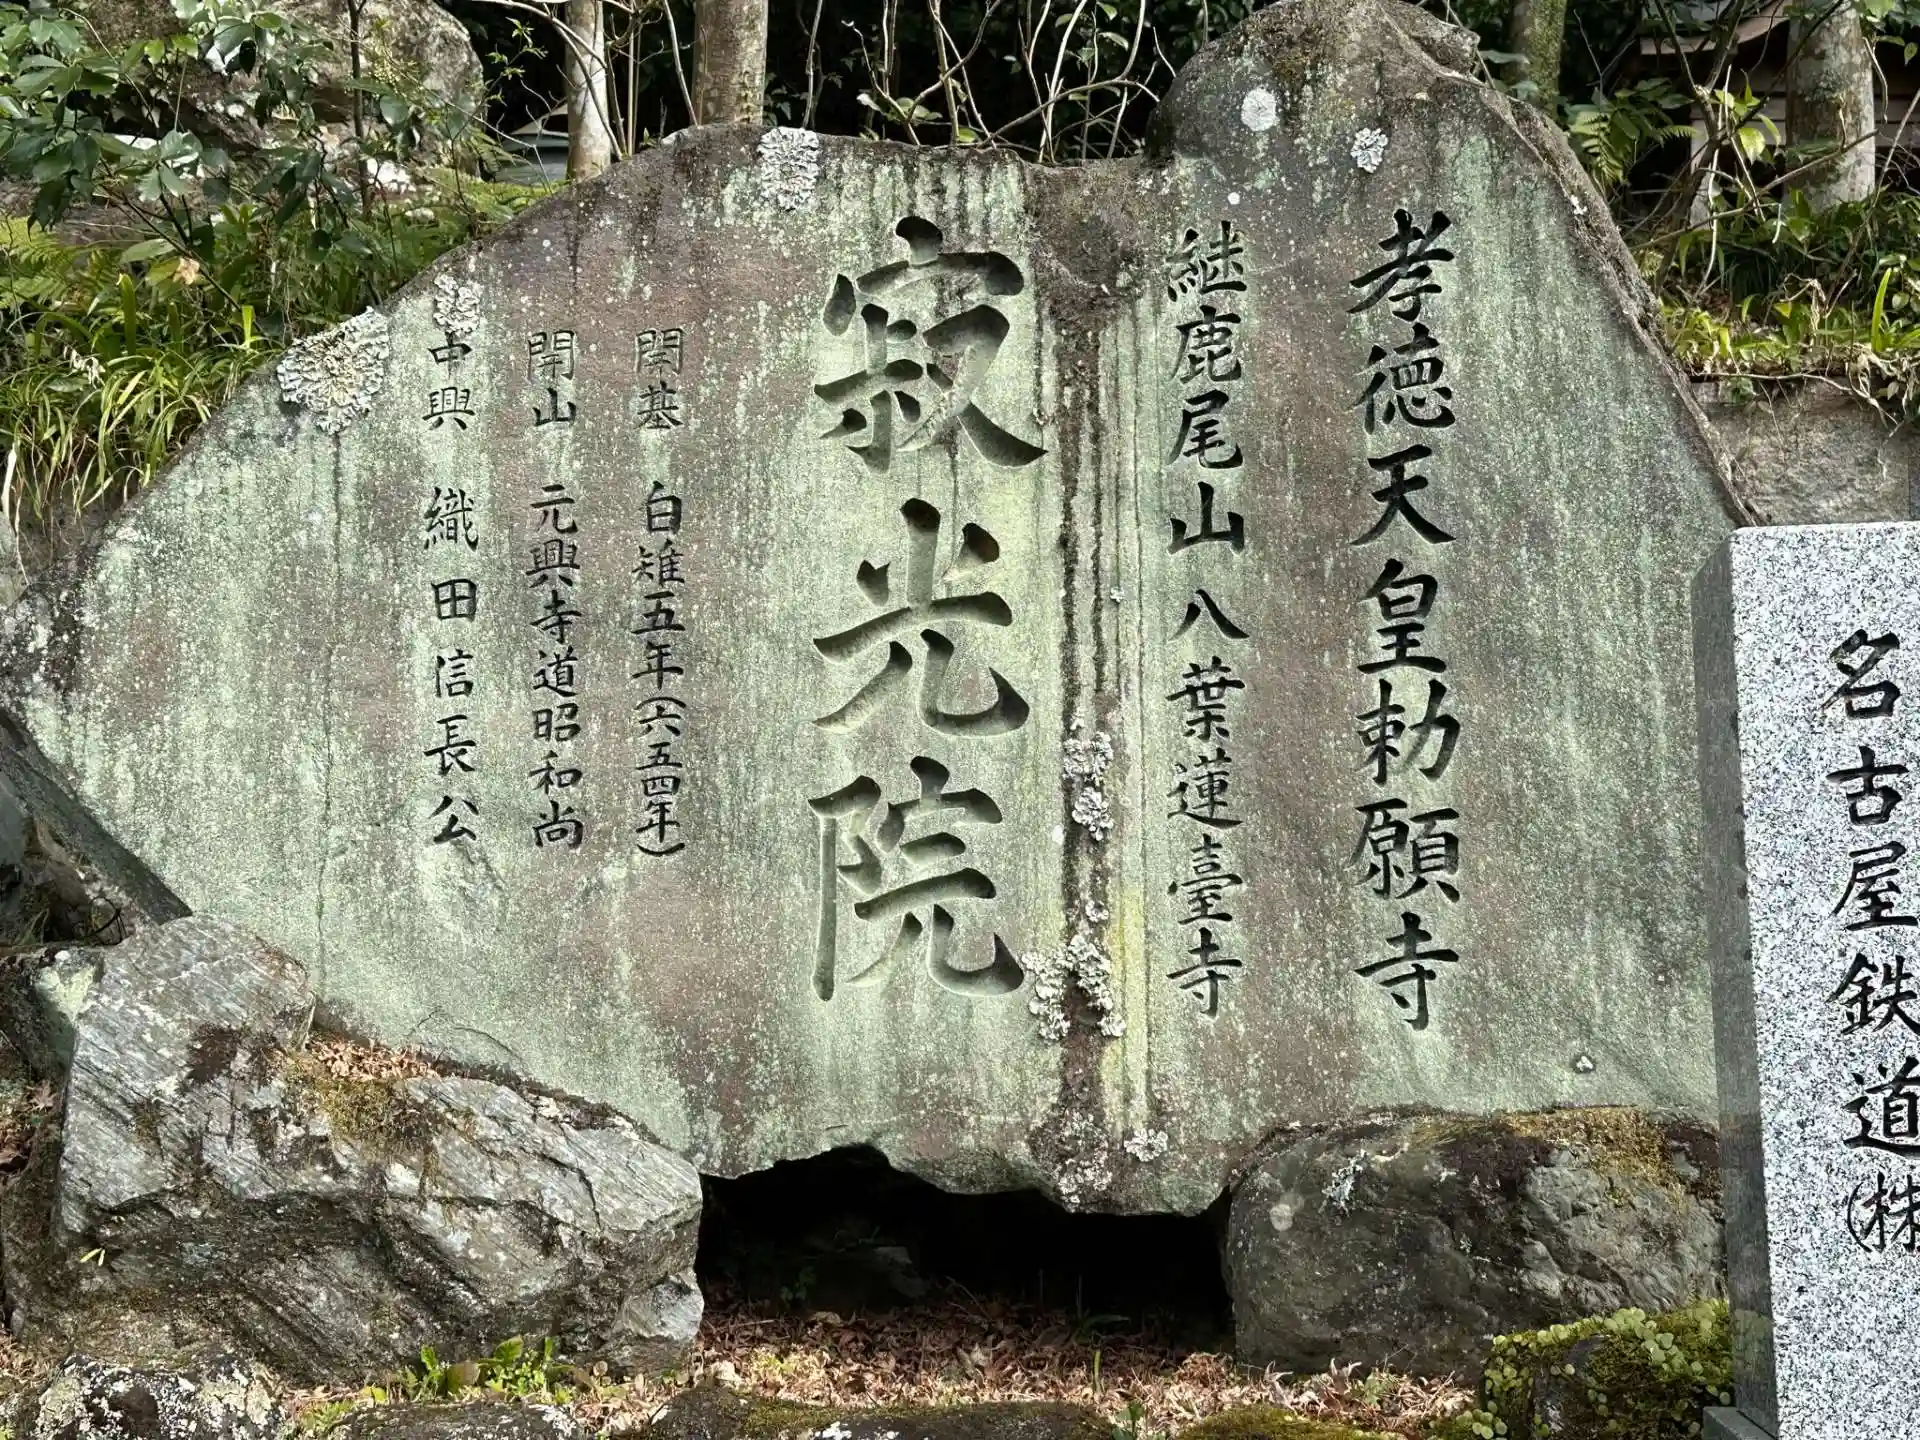 孝徳天皇勅願寺
継鹿尾山 八葉蓮臺寺
寂光院
開基 白雉五年(六五四年)
開山 元興寺道昭和尚
中興 織田信長公
名古屋鉄道(株